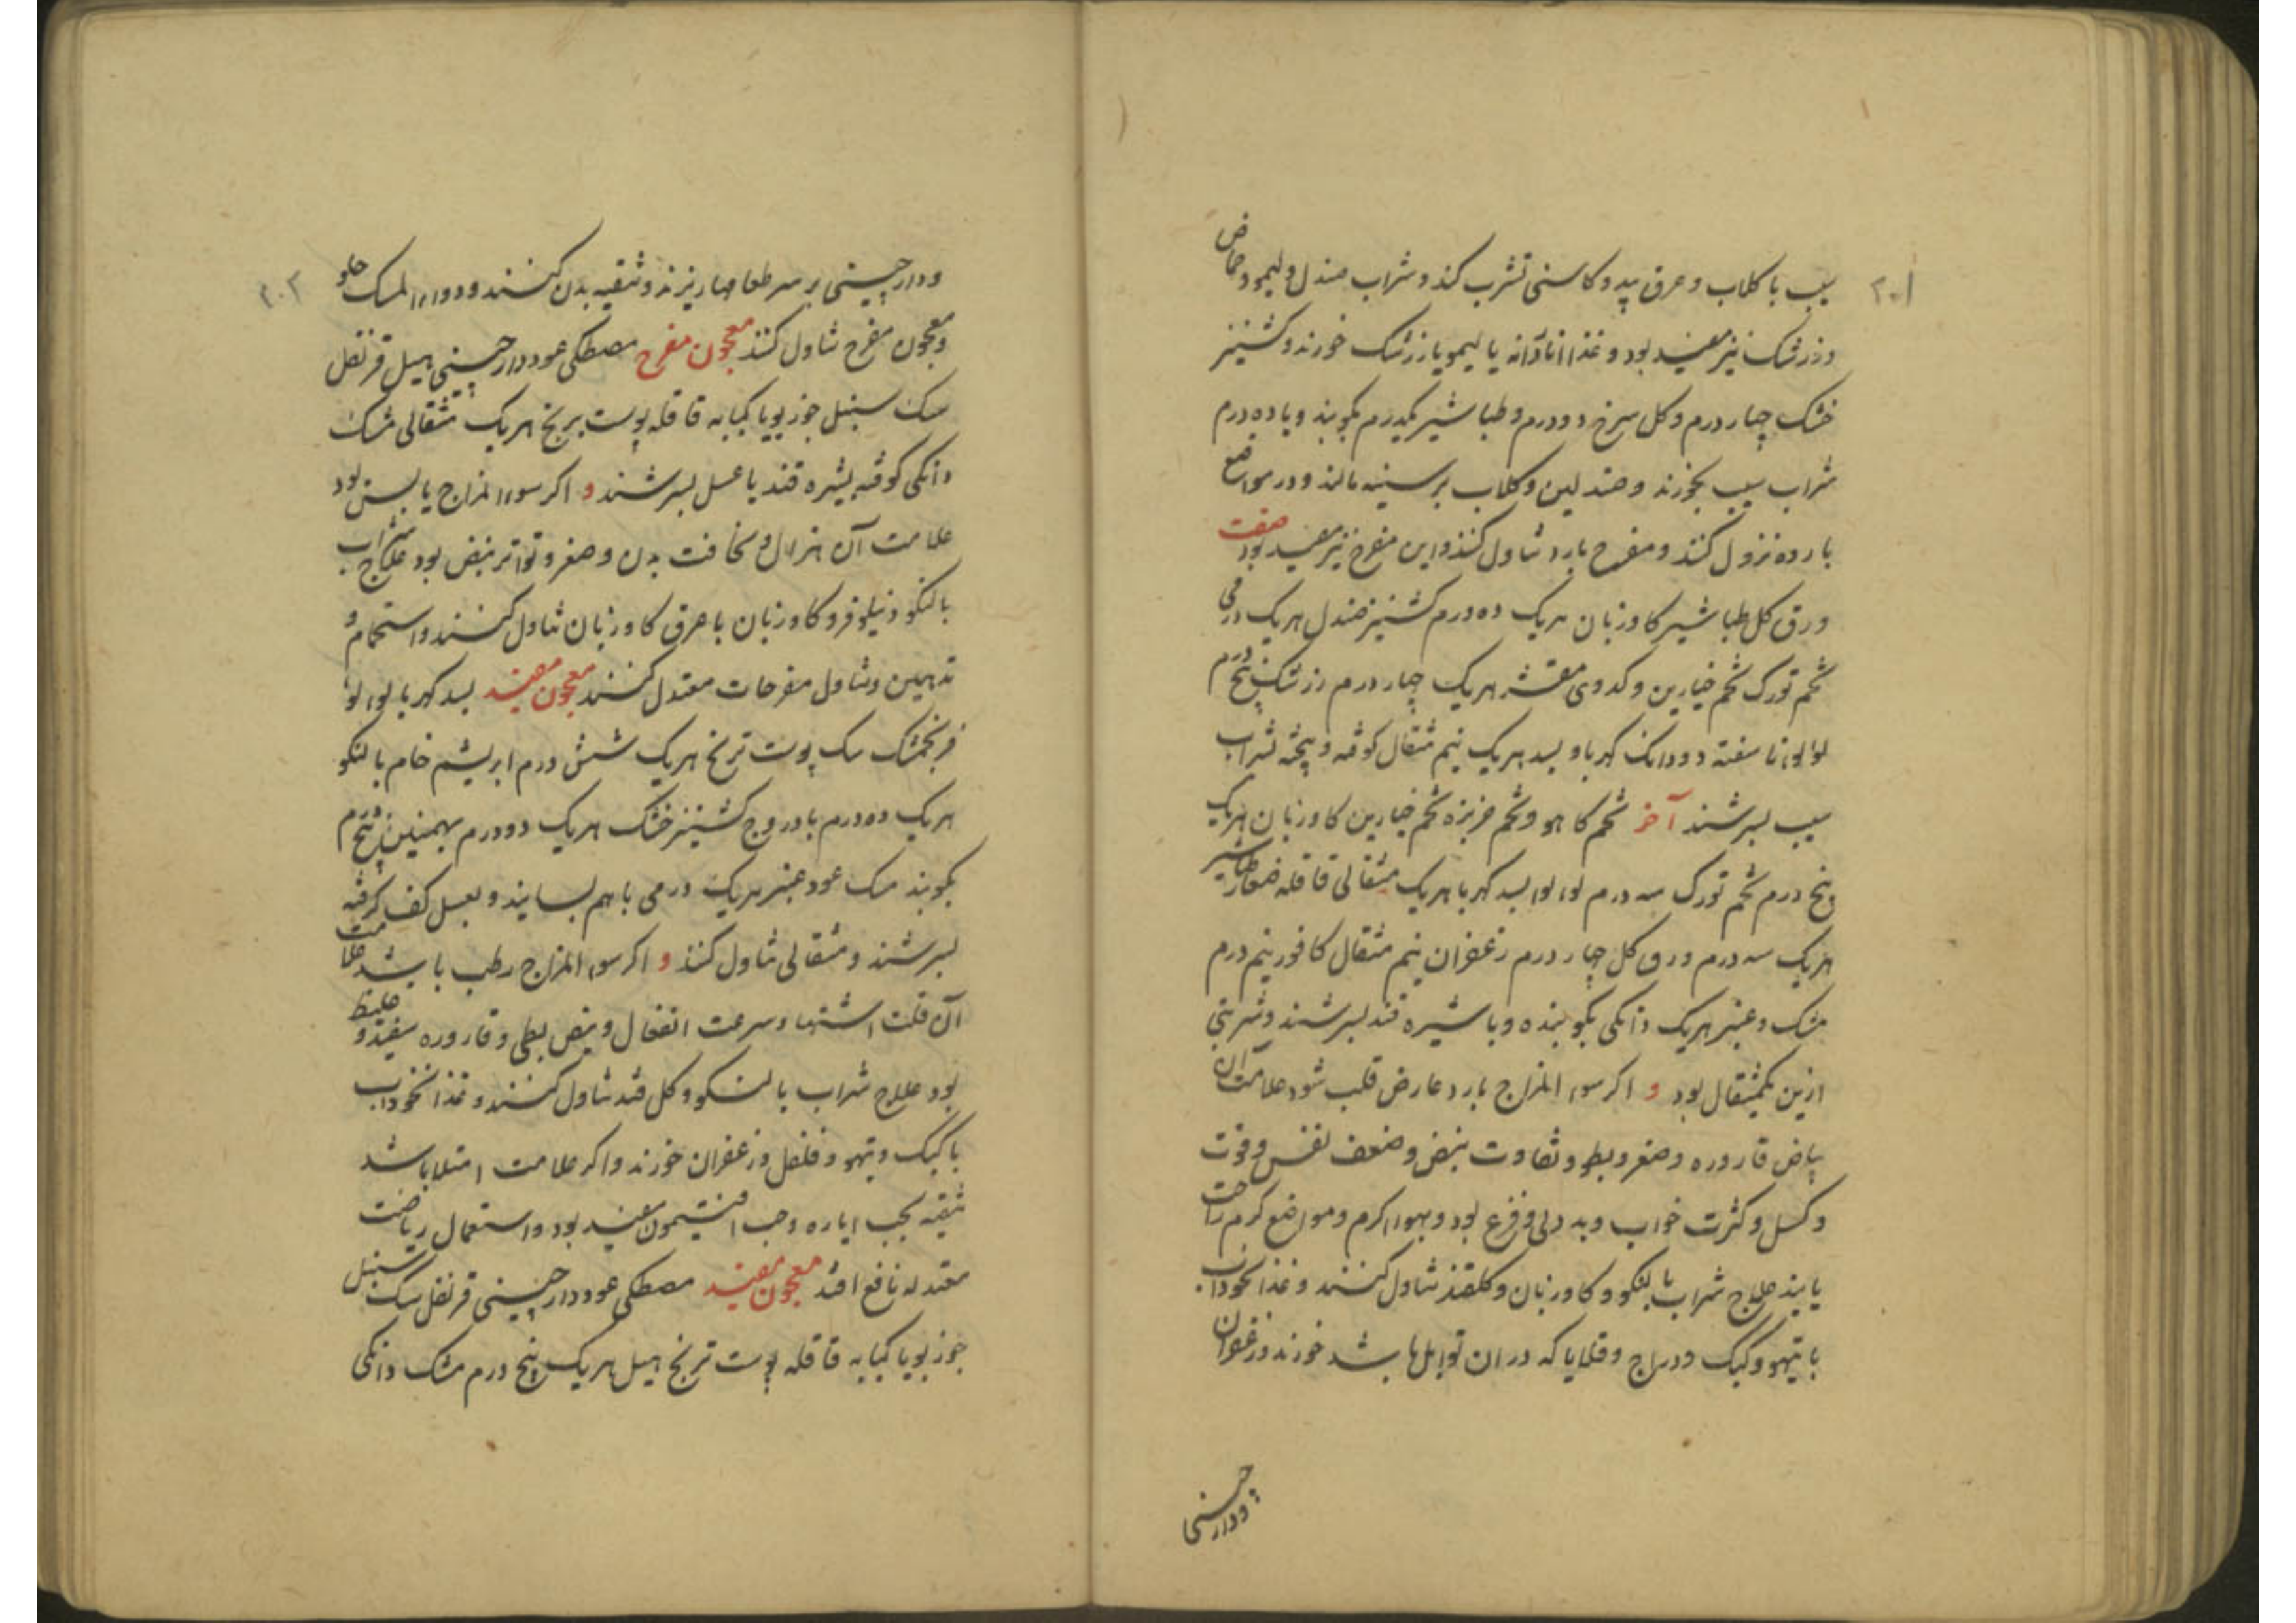 ۲۰۱
سیب با کلاب و عرق بید و کاسنی تشرب کند و شراب صندل و لیمو و حماض
و زرشک نیز مفید بود و غذا اناردانه یا لیمو یا زرشک خورند و کشنیز
خشک چهار درم و کل سرخ دو درم و طباشیر یکدرم بکوبند و با ده درم
شراب سیب بخورند و صندلین و کلاب بر سینه مالند و در مواضع
بارده نزول کنند و مفرح بارد تناول کنند و این مفرح نیز مفید بود صفت
ورق کل طباشیر کاوزبان هریک ده درم کشنیز صندل هریک درمی
تخم تورک تخم خیارین و کدوی مقشر هریک چهار درم زرشک پنج درم
لولوء ناسفته دو دانک کهربا و بسد هریک نیم مثقال کوفته و بیخته بشراب
سیب بسرشند آخر تخم کاهو و تخم خربزه تخم خیارین کاوزبان هریک
پنج درم تخم تورک سه درم لولو بسد کهربا هریک مثقالی قاقله صغار طباشیر
هریک سه درم ورق کل چهار درم زعفران نیم مثقال کافور نیم درم
مشک و عنبر هریک دانکی بکوبنده و با شیره قند بسرشند و شربتی
ازین یکمثقال بود و اکر سوء المزاج بارد عارض قلب شود علامت آن
بیاض قاروره و صغر و بطو و تفاوت نبض و ضعف نفس و قوت
و کسل و کثرت خواب و بد دلی و فزع بود و بهواء کرم و مواضع کرم راحت
یابند علاج شراب بالنکو و کاوزبان و کلقند تناول کنند و غذا نخوداب
با تیهو و کبک و دراج و قلایا که در ان توابل باشد خورند و زعفران
ودارچینی
۲۰۲
ودارچینی بر سر طعامها ریزند و تنقیه بدن کنند و دواء المسک حلو
و معجون مفرح تناول کنند معجون مفرح مصطکی عود دارچینی هیل قرنفل
سک سنبل جوزبویا کبابه قاقله پوست برنج هریک مثقالی مشک
دانکی کوفته بشیره قند یا عسل بسرشند و اکر سوء المزاج یابس بود
علامت آن هزال و نحافت بدن و صغر و تواتر نبض بود علاج شراب
بالنکو و نیلوفر و کاوزبان با عرق کاوزبان تناول کنند و استحمام و
تدهین و تناول مفرحات معتدل کنند معجون مفید بسد کهربا لولو
فرنجمشک سک پوست ترنج هریک شش درم ابریشم خام بالنکو
هریک ده درم بادروج کشنیز خشک هریک دو درم بهمنین پنج درم
بکوبند مسک عود عنبر هریک درمی با هم بسایند و بعسل کف کرفته
بسرشند و مثقالی تناول کنند و اکر سوء المزاج رطب باشد علامت
آن قلت اشتها و سرعت انفعال و نبض بطی و قاروره سفید و غلیظ
بود علاج شراب بالنکو و کل قند تناول کنند و غذا نخوداب
با کبک و تیهو و فلفل و زعفران خورند و اکر علامت امتلا باشد
تنقیه بحب ایاره و حب افتیمون مفید بود و استعمال ریاضت
معتدله نافع افتد معجون مفید مصطکی عود دارچینی قرنفل سک سنبل
جوزبویا کبابه قاقله پوست ترنج هیل هریک پنج درم مشک دانکی